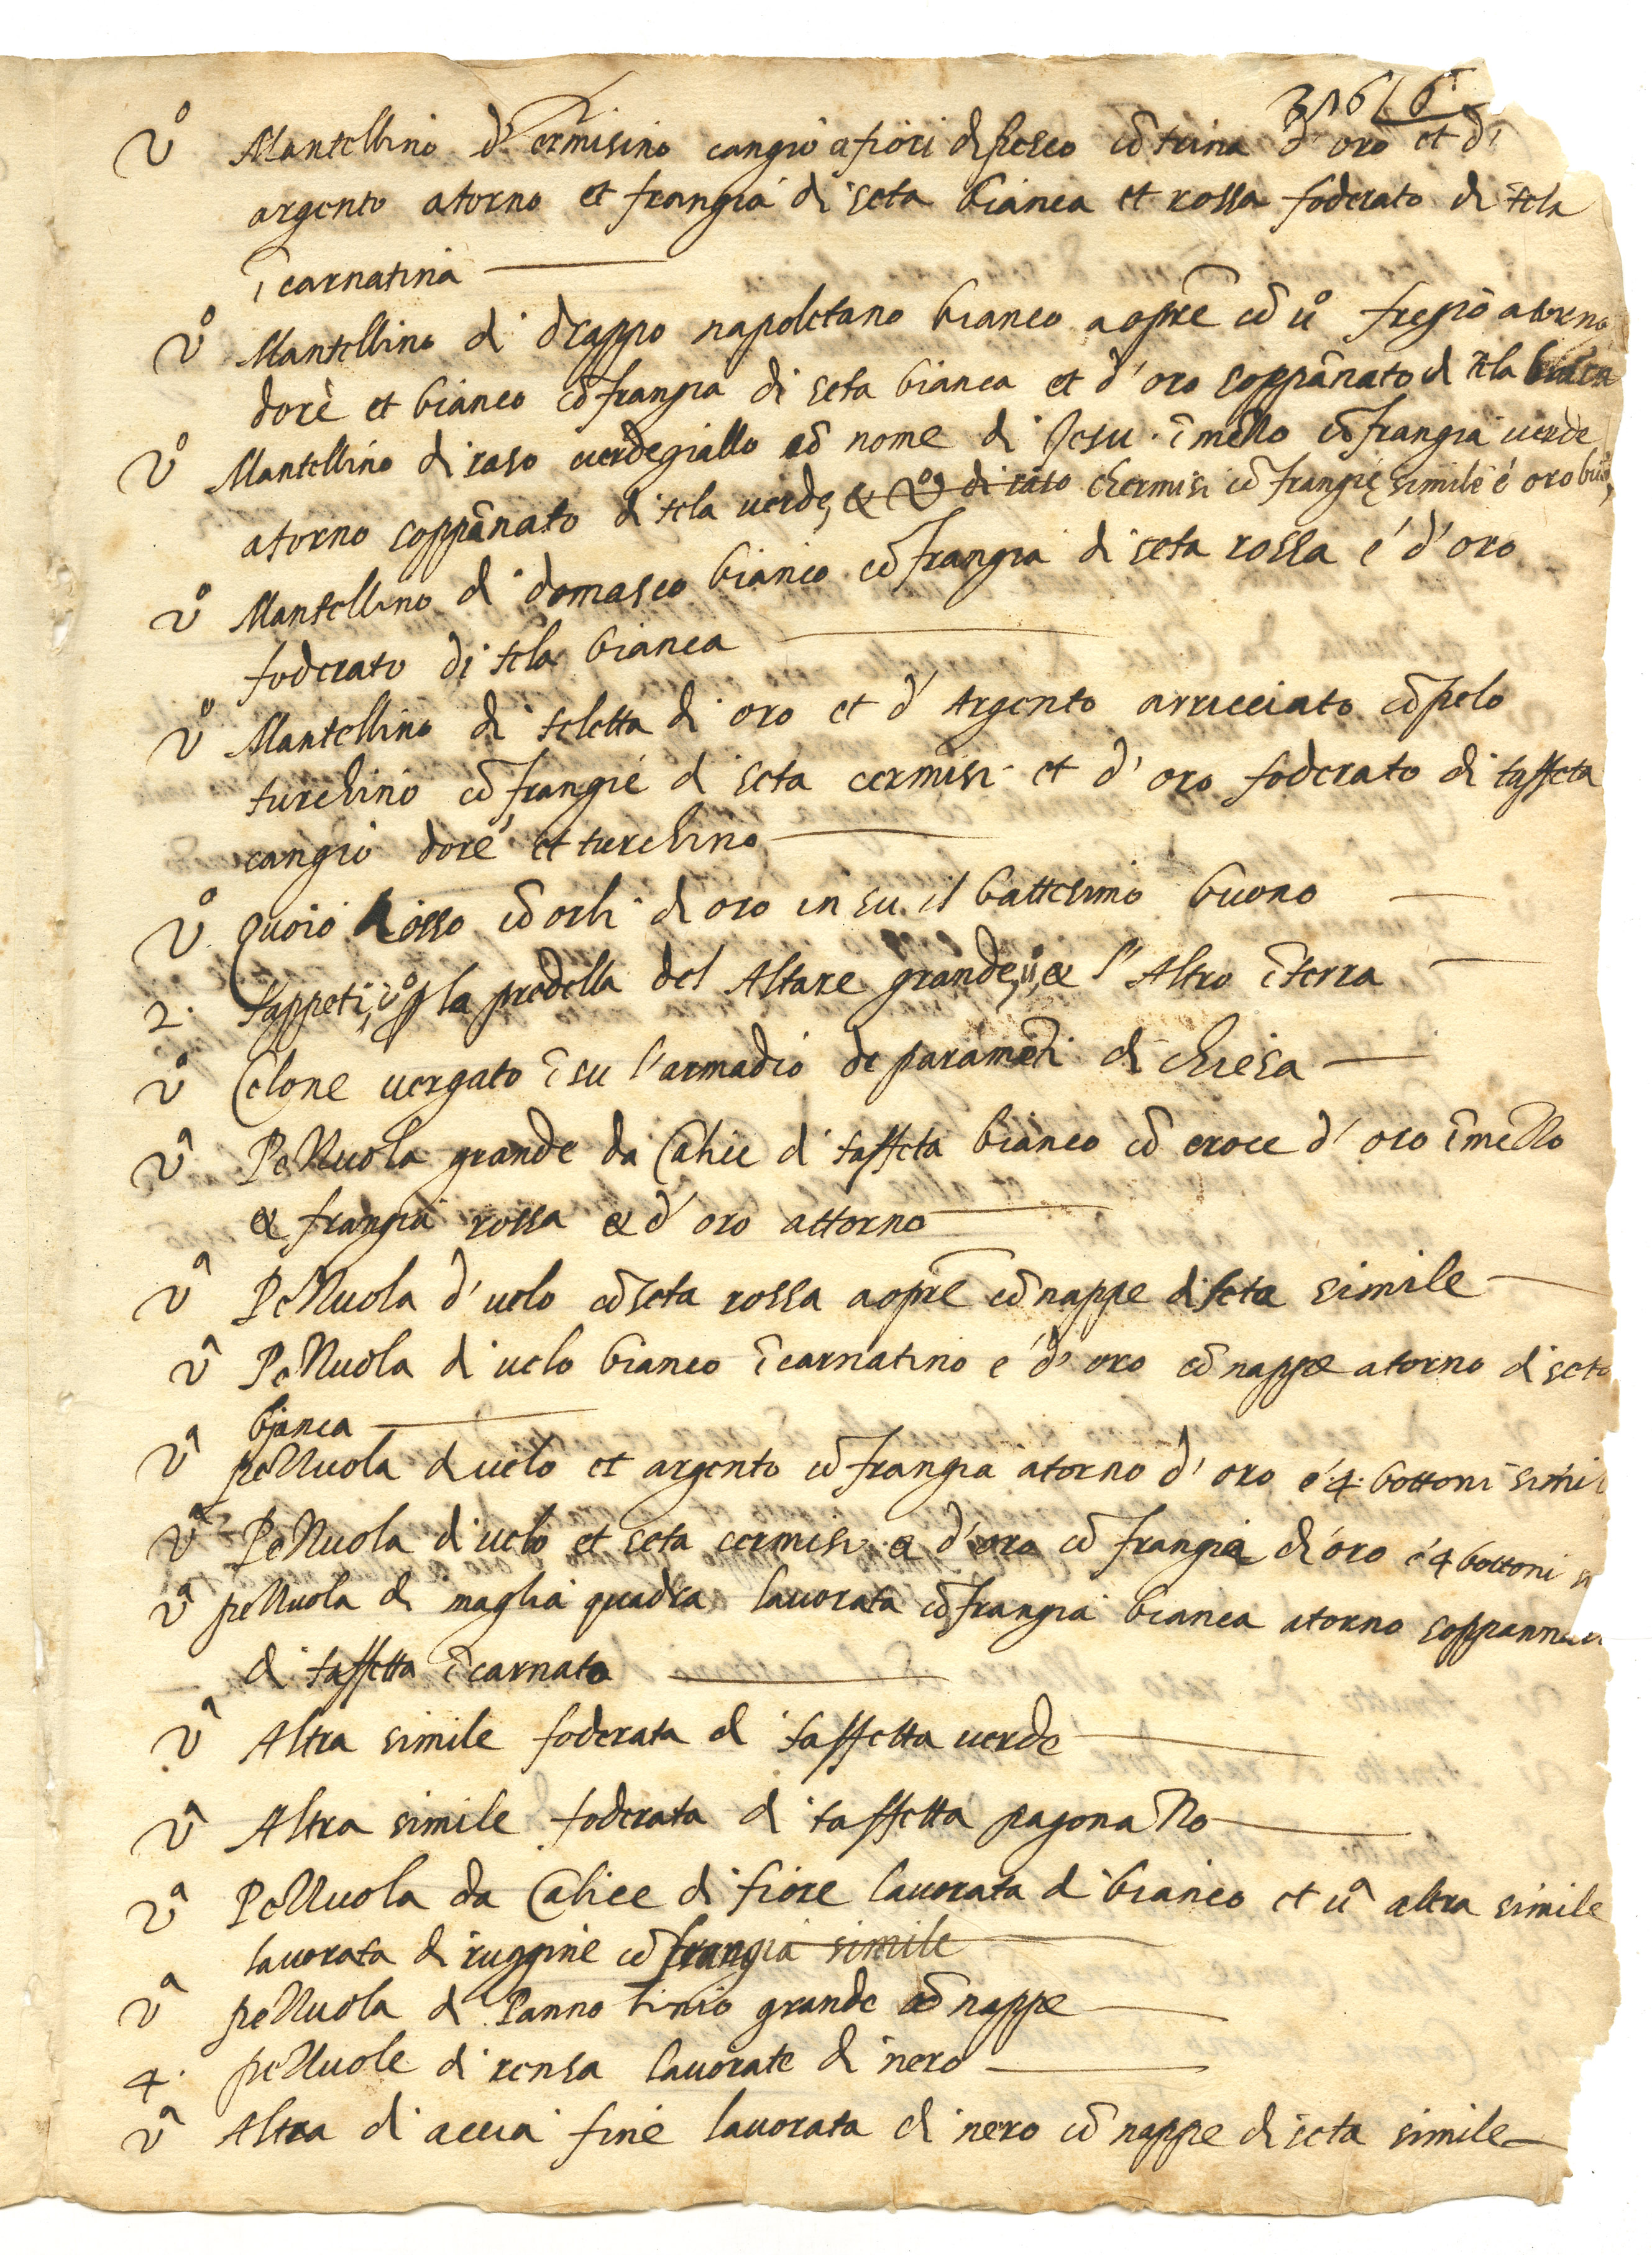 31616
vº Mantellino d'ermisino cangio a fiori di pesco cō trina d'oro et di
argento atorno et frangia di seta bianca et rossa foderato di tela
īcarnatina
vº Mantellino di drappo napoletano bianco aopre cō uº fregio atorno
dorè et bianco cō frangia di seta bianca et d'oro soppānato di tela bianca
vº Mantellino di raso verdegiallo cō nome di Jesu ī mezzo cō frangia uerde
atorno soppānato di tela uerde, & vº di raso chermisi cō frangie simile é oro buoº
vº Mantellino di domasco bianco cō frangia di seta rossa é d'oro
foderato di tela bianca
vº Mantellino di teletta di oro et d'Argento arricciato cō pelo
turchino cō frangie di seta cermisi et d'oro foderato di taffeta
cangio dorè et turchino
vº Quoio Rosso cō orli di oro in su il battesimo buono
2. Tappeti, vº p la predella del Altare grande, & l'Altro ī terra
vº Celone uergato ī su l'armadio de paramēti di chiesa
vª Pezzuola grande da Calice di taffeta bianco cō croce d'oro ī mezzo
& frangia rossa & d'oro attorno
vª Pezzuola d'uelo cō seta rossa aopre cō nappe di seta simile
vª Pezzuola di uelo bianco īcarnatino e d'oro cō nappe atorno di seta
bianca
vª pezzuola di uelo et argento cō frangia atorno d'oro é 4. bottoni simi
vª Pezzuola di uelo et seta cermisi & d'oro cō frangia di oro é 4 bottoni
vª pezzuola di maglia quadra lauorata cō frangia bianca atorno soppann
di taffetta īcarnato
vª Altra simile foderata di taffetta uerde
vª Altra simile foderata di taffetta pagonazzo
vª Pezzuola da Calice di fiore lauorata di bianco et uª altra simile
lauorata di ruggine cō frangia simile
vª pezzuola di Panno linio grande cō nappe
4. pezzuole di rensa lauorate di nero
vª Altra di accia fine lauorata di nero cō nappe di seta simile